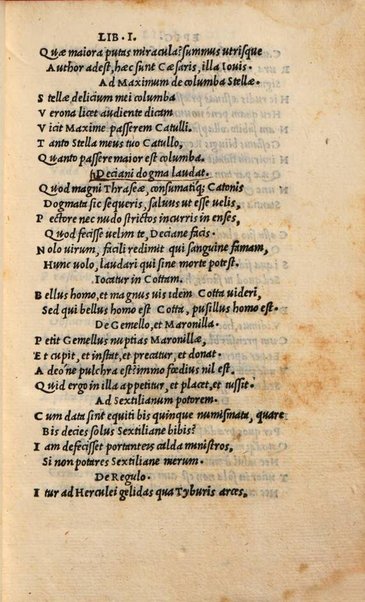 LIB. I.
Quæ maiora putas miracula? summus utrisque
Author adest, hæc sunt Cæsaris, illa Iouis.
Ad Maximum de columba Stellæ.
Stellæ delicium mei columba
Verona licet audiente dicam
Vicit Maxime passerem Catulli.
Tanto Stella meus tuo Catullo,
Quanto passere maior est columba.
Deciani dogma laudat.
Quod magni Thraseæ, consumatiq; Catonis
Dogmata sic sequeris, saluus ut esse uelis,
Pectore nec nudo strictos incurris in enses,
Quod fecisse uelim te, Deciane facis.
Nolo uirum, facili redimit qui sanguine famam,
Hunc uolo, laudari qui sine morte potest.
Iocatur in Cottam.
Bellus homo, et magnus uis idem Cotta uideri,
Sed qui bellus homo est Cotta, pusillus homo est.
De Gemello, et Maronilla.
Petit Gemellus nuptias Maronillæ,
Et cupit, et instat, et precatur, et donat.
Adeo'ne pulchra est? immo fœdius nil est.
Quid ergo in illa appetitur, et placet, et tussit.
Ad Sextilianum potorem.
Cum data sint equiti bis quinque numismata, quare
Bis decies solus Sextiliane bibis?
Iam defecisset portanteis calda ministros,
Si non potares Sextiliane merum.
De Regulo.
Itur ad Herculei gelidas qua Tyburis arces,